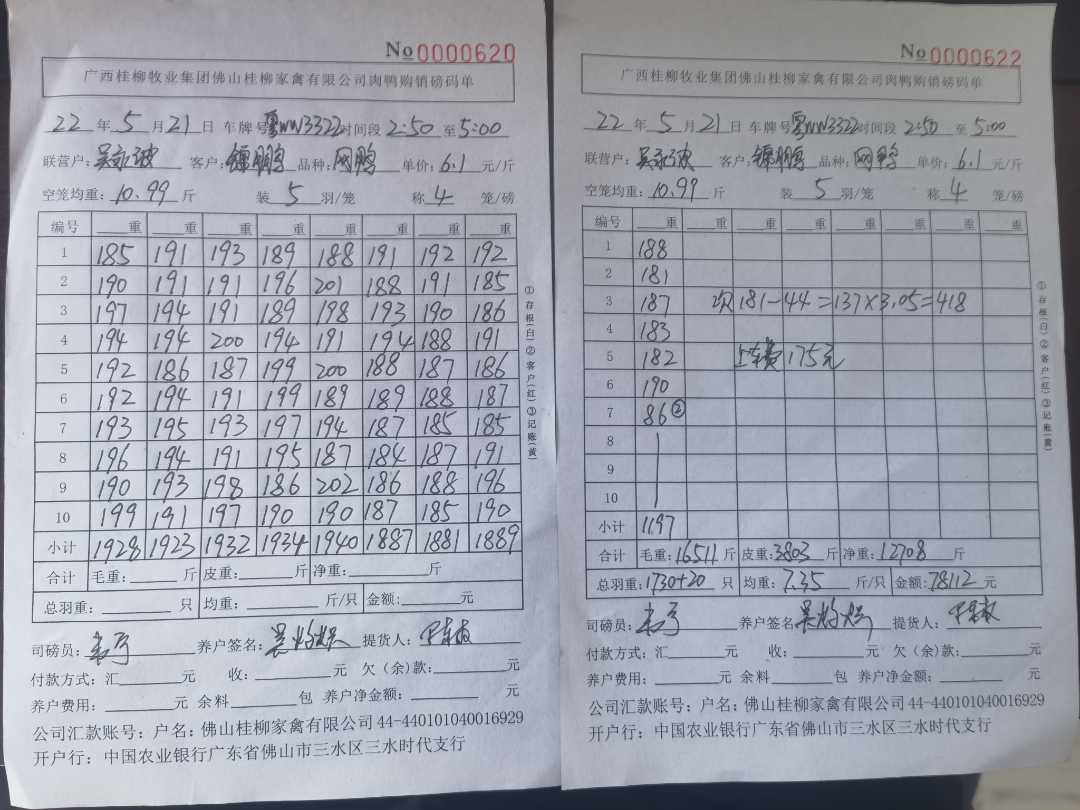 No 0000620
广西桂柳牧业集团佛山桂柳家禽有限公司肉鸭购销磅码单
22年5月21日 车牌号粤WW3322时间段2:50至5:00
联营户:吴永波 客户: 品种: 单价:6.1元/斤
空笼均重:10.99斤 装5羽/笼 称4笼/磅
编号 重 重 重 重 重 重 重 重
1 185 191 193 189 188 191 192 192
2 190 191 191 196 201 188 191 185
3 197 194 191 189 198 193 190 186
4 194 194 200 194 191 194 188 191
5 192 186 187 199 200 188 187 186
6 192 194 191 199 189 189 188 187
7 193 195 193 197 194 187 185 185
8 196 194 191 195 187 184 187 191
9 190 193 198 186 202 186 188 196
10 199 191 197 190 190 187 185 190
小计 1928 1923 1932 1934 1940 1887 1881 1889
合计 毛重:斤 皮重:斤 净重:斤
总羽重:只 均重:斤/只 金额:元
司磅员: 养户签名: 提货人:
付款方式:汇元 收:元 欠(余)款:元
养户费用:元 余料包 养户净金额:元
公司汇款账号:户名:佛山桂柳家禽有限公司44-440101040016929
开户行:中国农业银行广东省佛山市三水区三水时代支行
①存根(白)②客户(红)③记账(黄)
No 0000622
广西桂柳牧业集团佛山桂柳家禽有限公司肉鸭购销磅码单
22年5月21日 车牌号粤WW3322时间段2:50至5:00
联营户:吴永波 客户: 品种: 单价:6.1元/斤
空笼均重:10.99斤 装5羽/笼 称4笼/磅
编号 重 重 重 重 重 重 重 重
1 188
2 181
3 187 次181-44=137×3.05=418
4 183
5 182 上车费175元
6 190
7 86②
8
9
10
小计 1197
合计 毛重:16511斤 皮重:3803斤 净重:12708斤
总羽重:1730+20只 均重:7.35斤/只 金额:78112元
司磅员: 养户签名: 提货人:
付款方式:汇元 收:元 欠(余)款:元
养户费用:元 余料包 养户净金额:元
公司汇款账号:户名:佛山桂柳家禽有限公司44-440101040016929
开户行:中国农业银行广东省佛山市三水区三水时代支行
①存根(白)②客户(红)③记账(黄)